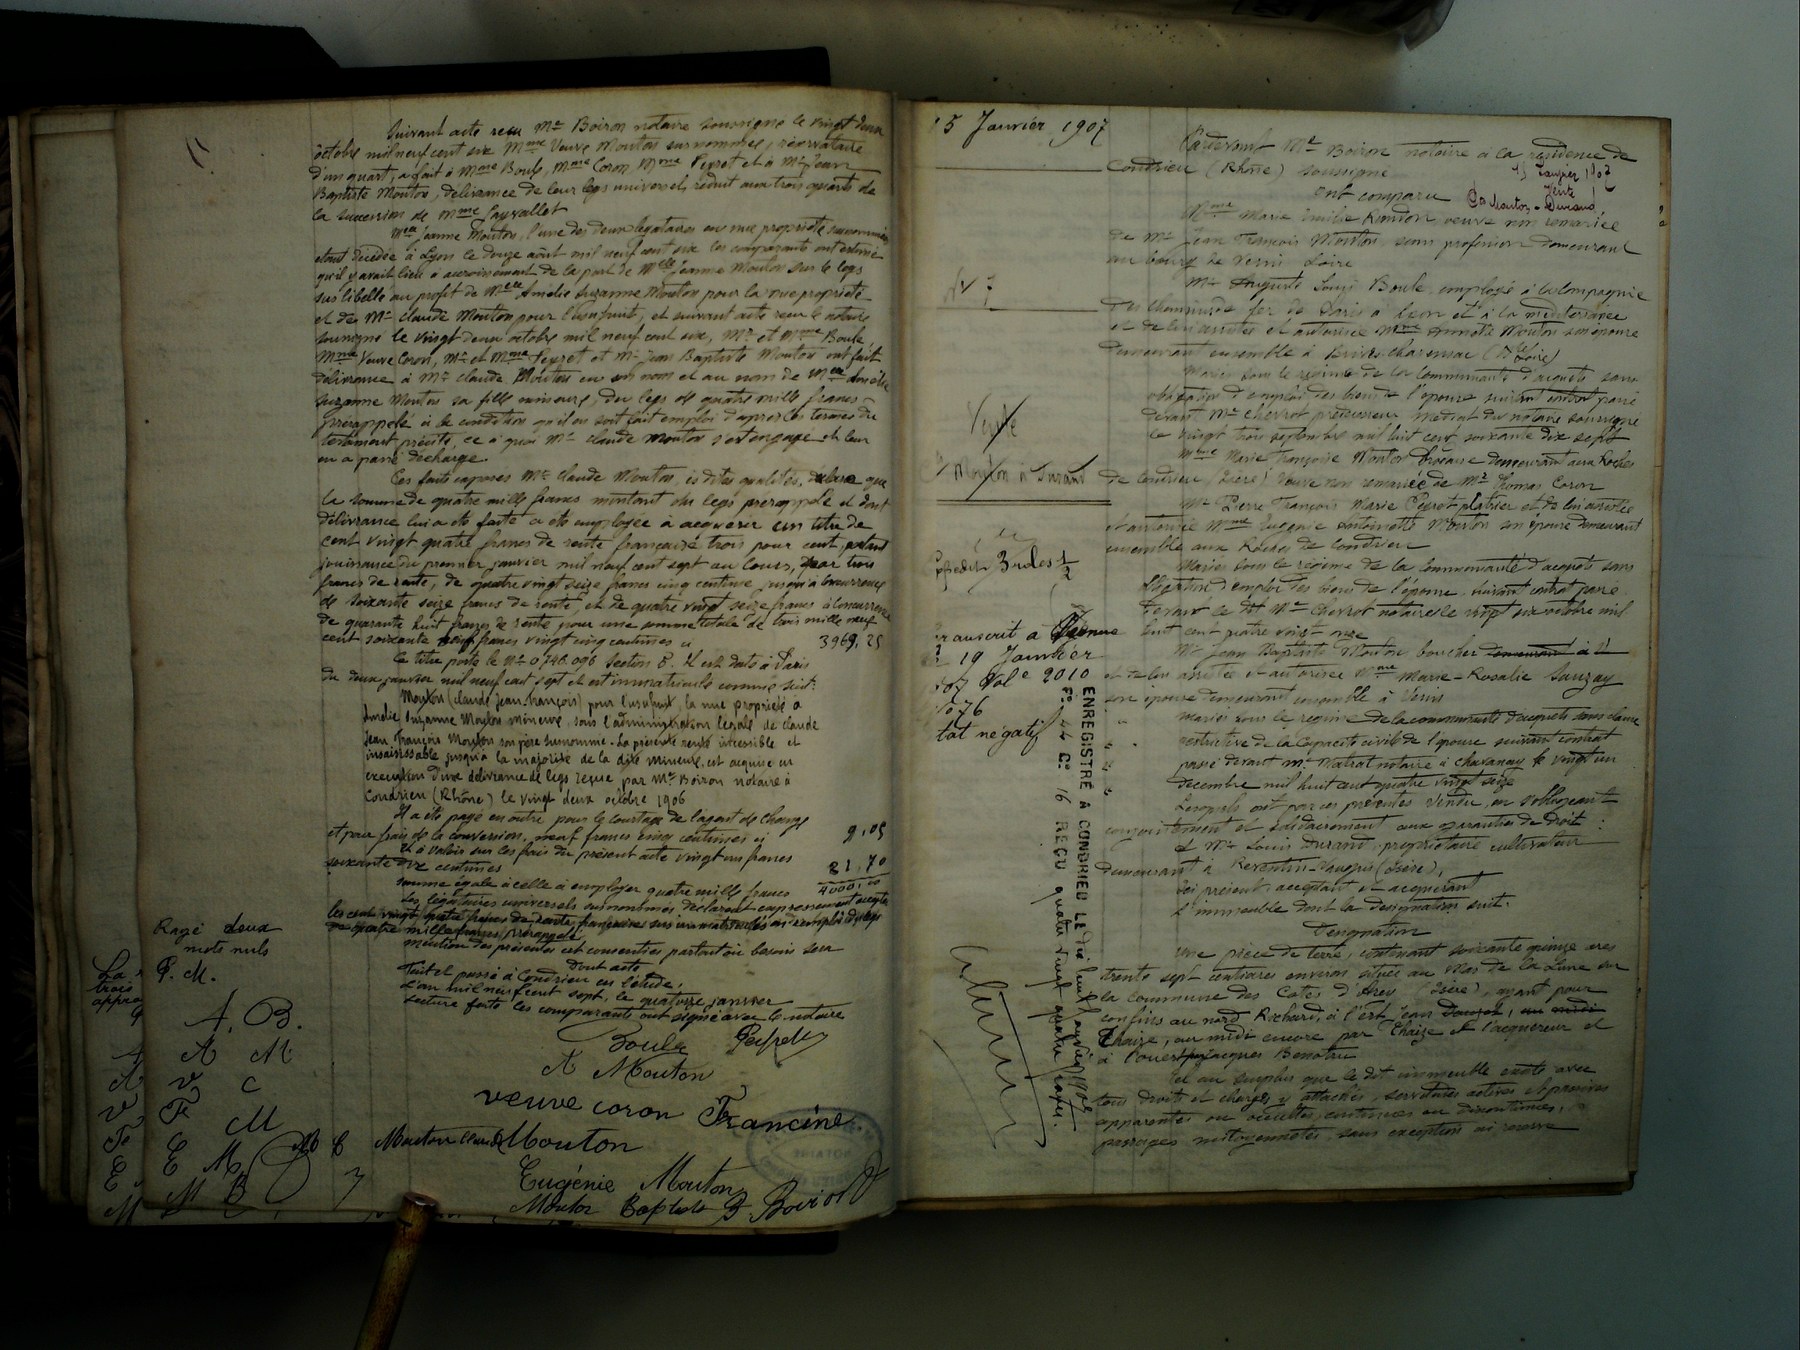 Suivant acte reçu Me Boiron notaire soussigné le vingt deux
octobre mil neuf cent six Mme Veuve Mouton surnommée, réservataire
d'un quart, a fait à Mme Boule, Mme Coron Mme Peyret et à Mr Jean
Baptiste Mouton, délivrance de leur legs universel, réduit aux trois quarts de
la succession de Mme
Melle Jeanne Mouton, l'une des deux légataires en nue propriété surnommées
étant décédée à Lyon le douze août mil neuf cent six les comparants ont estimé
qu'il y avait lieu à accroissement de la part de Melle Jeanne Mouton sur le legs
sus libellé au profit de Melle Amélie Suzanne Mouton pour la nue propriété
et de Mr Claude Mouton pour l'usufruit, et suivant acte reçu le notaire
soussigné le vingt deux octobre mil neuf cent six, Mr et Mme Boule
Mme Veuve Coron, Mr et Mme Peyret et Mr Jean Baptiste Mouton ont fait
délivrance à Mr Claude Mouton en son nom et au nom de Melle Amélie
Suzanne Mouton sa fille mineure, du legs de quatre mille francs
prérappelé à la condition qu'il en soit fait emploi d'après les termes du
testament précité, ce à quoi Mr Claude Mouton s'est engagé et leur
en a passé décharge.
Ces faits exposés Mr Claude Mouton, ès dites qualités, déclare que
la somme de quatre mille francs montant du legs prérappelé et dont
délivrance lui a été faite a été employée à acquérir un titre de
cent vingt quatre francs de rente française trois pour cent, portant
jouissance du premier janvier mil neuf cent sept au cours, par trois
francs de rente, de quatre vingt seize francs cinq centimes jusqu'à concurrence
de soixante seize francs de rente, et de quatre vingt seize francs à concurrence
de quarante huit francs de rente pour une somme totale de trois mille neuf
cent soixante neuf francs vingt cinq centimes ci 3969,25
Ce titre porte le No 0,746.096 section 8. Il est daté à Paris
du deux janvier mil neuf cent sept et est immatriculé comme suit:
Mouton (Claude Jean-François) pour l'usufruit, la nue propriété à
Amélie Suzanne Mouton mineure, sous l'administration légale de Claude
Jean François Mouton son père surnommé. La présente rente incessible et
insaisissable jusqu'à la majorité de la dite mineure, est acquise en
exécution d'une délivrance de legs reçue par Me Boiron notaire à
Condrieu (Rhône) le vingt deux octobre 1906
Il a été payé en outre pour le courtage de l'agent de change
et pour frais de la conversion, neuf francs cinq centimes ci 9,05
Et à valoir sur les frais du présent acte vingt un francs
soixante dix centimes 21,70
somme égale à celle à employer quatre mille francs 4000,00
Les légataires universels surnommés déclarent expressément accepter
les cent vingt quatre francs de rente française sus immatriculés en remploi du legs
de quatre mille francs prérappelé
Mention des présentes est consentie partout où besoin sera
Dont acte
Fait et passé à Condrieu en l'étude,
L'an mil neuf cent sept, le quatorze janvier
Lecture faite les comparants ont signé avec le notaire
Boule Peyret
A Mouton
veuve coron Francine
Mouton Claude Mouton
Eugénie Mouton
Mouton Baptiste B. Boiron
Rayé deux
mots nuls
P. M.
A. B.
A M
V C
F M
E M
M B
15 Janvier 1907
No 7
Vente
Mouton à Durand
Expédié 3 roles 1/2
Transcrit à Vienne
le 19 Janvier
1907 Vol. 2010
No 76
Etat négatif
ENREGISTRÉ A CONDRIEU LE dix huit janvier 1907
Fo 44 Co 16 REÇU quatre vingt quatre francs
Pardevant Me Boiron notaire à la résidence de
Condrieu (Rhône) soussigné
15 Janvier 1907
Vente
Con Mouton - Durand
Ont comparu
Mme Marie Emilie Rondon veuve non remariée
de Mr Jean François Mouton, sans profession demeurant
au bourg de Verin Loire
Mr Auguste Louis Boule employé à la Compagnie
des Chemins de fer de Paris à Lyon et à la méditerranée
et de lui assistée et autorisée Mme Annette Mouton son épouse
demeurant ensemble à Brives-Charensac (Hte Loire)
Mariés sous le régime de la Communauté d'acquêts sans
obligation d'emploi des biens de l'épouse suivant contrat passé
devant Me Chevrot prédécesseur médiat du notaire soussigné
le vingt trois septembre mil huit cent soixante dix sept
Mme Marie Françoise Mouton demeurant aux Roches
de Condrieu (Isère) veuve non remariée de Mr Thomas Coron
Mr Pierre François Marie Peyret plâtrier et de lui assistée
et autorisée Mme Eugénie Antoinette Mouton son épouse demeurant
ensemble aux Roches de Condrieu
Mariés sous le régime de la Communauté d'acquêts sans
obligation d'emploi des biens de l'épouse, suivant contrat passé
devant le dit Me Chevrot notaire le vingt six octobre mil
huit cent quatre vingt onze
Mr Jean Baptiste Mouton boucher demeurant à V
et de lui assistée et autorisée Mme Marie-Rosalie Sauzay
son épouse demeurant ensemble à Verin
Mariés sous le régime de la communauté d'acquêts sans clause
restrictive de la capacité civile de l'épouse suivant contrat
passé devant Me Matrat notaire à Chavanay le vingt un
décembre mil huit cent quatre vingt seize
Lesquels ont par ces présentes vendu, en s'obligeant
conjointement et solidairement aux garanties de droit :
à Mr Louis Durand, propriétaire cultivateur
demeurant à Reventin-Vaugris (Isère),
ici présent, acceptant et acquérant
L'immeuble dont la désignation suit.
Désignation
Une pièce de terre, contenant soixante quinze ares
trente sept centiares environ située au Mas de la Lune sur
la commune des Côtes d'Arey (Isère), ayant pour
confins au nord Rochard, à l'est Jean Douzet, au midi
Chaize, au midi encore par Chaize et l'acquéreur et
à l'ouest Jacques Benatru
Tel au surplus que le dit immeuble existe avec
tous droits et charges y attachés, servitudes actives et passives
apparentes ou occultes, continues ou discontinues,
passages mitoyennetés, sans exception ni réserve